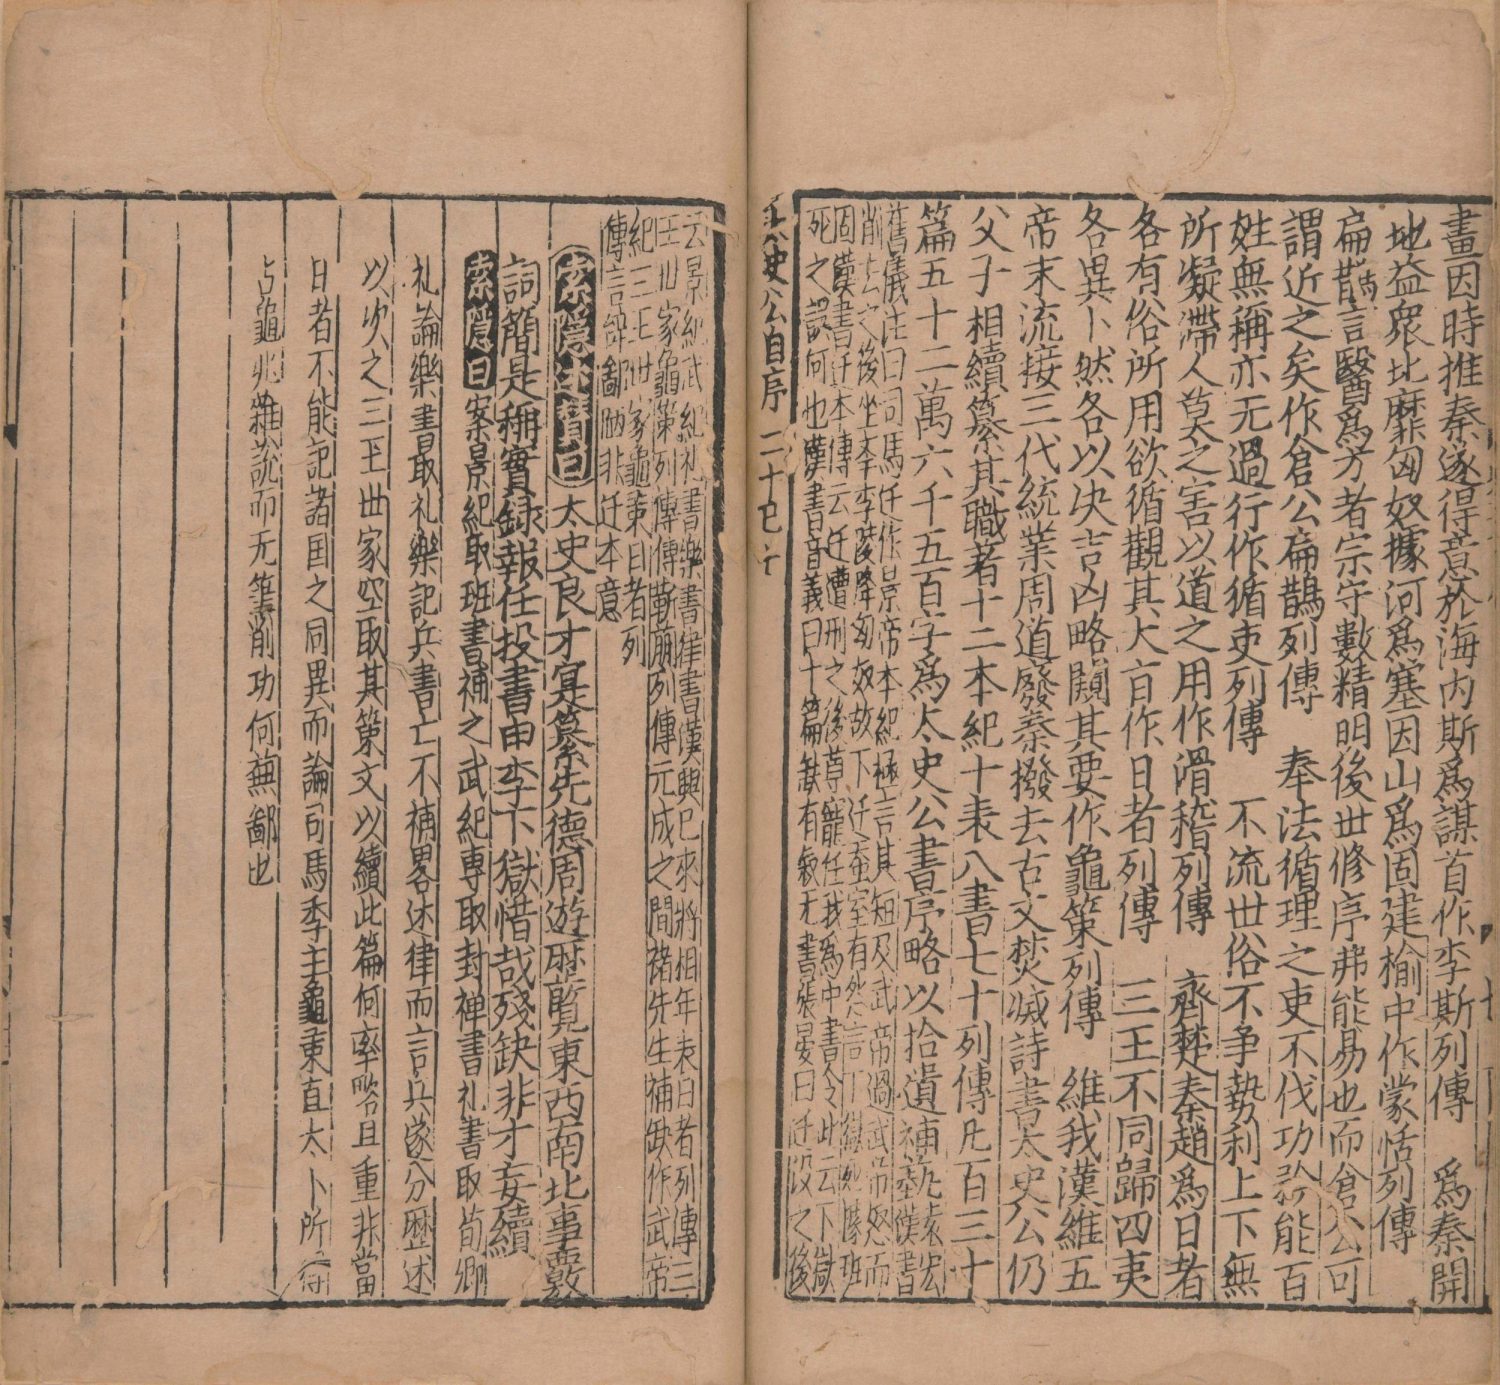 畫因時推秦遂得意於海内斯爲謀首作李斯列傳　爲秦開
地益衆北靡匈奴據河爲塞因山爲固建榆中作蒙恬列傳
扁鵲言醫爲方者宗守數精明後世修序弗能易也而倉公可
謂近之矣作倉公扁鵲列傳　奉法循理之吏不伐功矜能百
姓無稱亦无過行作循吏列傳　不流世俗不争勢利上下無
所凝滯人莫之害以道之用作滑稽列傳　齊楚秦趙爲日者
各有俗所用欲循觀其大旨作日者列傳　三王不同歸四夷
各異卜然各以决吉凶略闚其要作龜策列傳　維我漢維五
帝末流接三代統業周道廢秦撥去古文焚滅詩書太史公仍
父子相續纂其職著十二本紀十表八書七十列傳凡百三十
篇五十二萬六千五百字爲太史公書序略以拾遺補藝
衛宏漢書
舊儀注曰司馬迁作景帝本紀極言其短及武帝過武帝怒而
削去之後坐李李陵降匈奴故下迁蚕室有怨言下獄死據班
固漢書迁本傳云迁遭刑之後尊寵任職爲中書令此云下獄
死之誤何也漢書音義曰十篇缺有録无書張晏曰迁没之後
太史公自序 二十
云景紀武紀礼書樂書律書漢興已來將相年表日者列傳三
王世家龜策列傳傳靳蒯列傳元成之間褚先生補缺作武帝
紀三王世家龜策日者列
傳言辭鄙陋非迁本意
索隱述贊曰太史良才寔纂先德周遊歷覽東西南北事覈
詞簡是稱實録報任投書申李下獄惜哉殘缺非才妄續
索隱曰案景紀取班書補之武紀專取封禅書礼書取荀卿
礼論樂書取礼樂記兵書亡不補畧述律而言兵遂分歷述
以次之三王世家空取其策文以續此篇何率略且重非當
日者不能記諸国之同異而論司馬季主龜策直太卜所得
占龜兆雜説而无筆削功何蕪鄙也